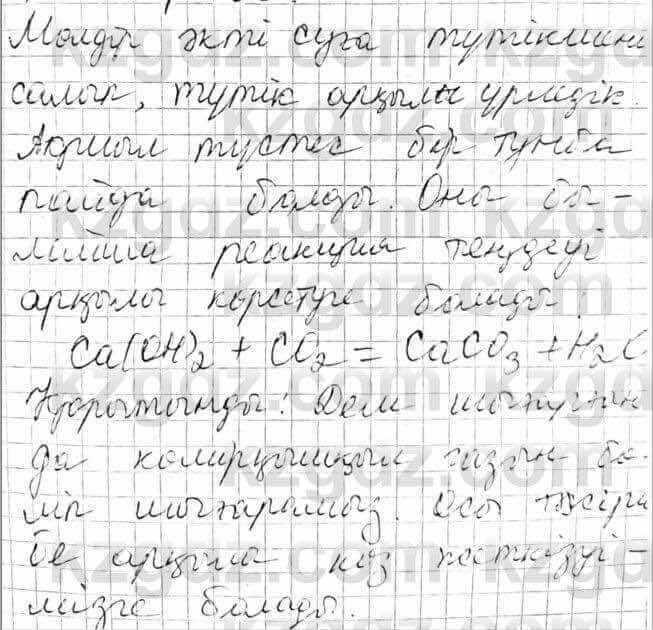 Мөлдір әкті суға түтікшені
салып, түтік арқылы үрледік.
Ақшыл түстес бір тұнба
пайда болды. Оны бы-
лайша реакция теңдеуі
арқылы көрсетуге болады:
Ca(OH)2 + CO2 = CaCO3 + H2O
Қорытынды: Дем шығарған
да көмірқышқыл газын бө-
ліп шығарамыз. Осы тәжіри
бе арқылы көз жеткізуі-
мізге болады.
kzgdz.com